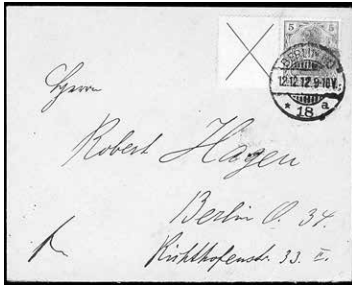 5 5
BERLIN
12.12.12.9-10V.
* 18 a
Herrn
Robert Hagen
Berlin O. 34.
Richthofenstr. 33 I.